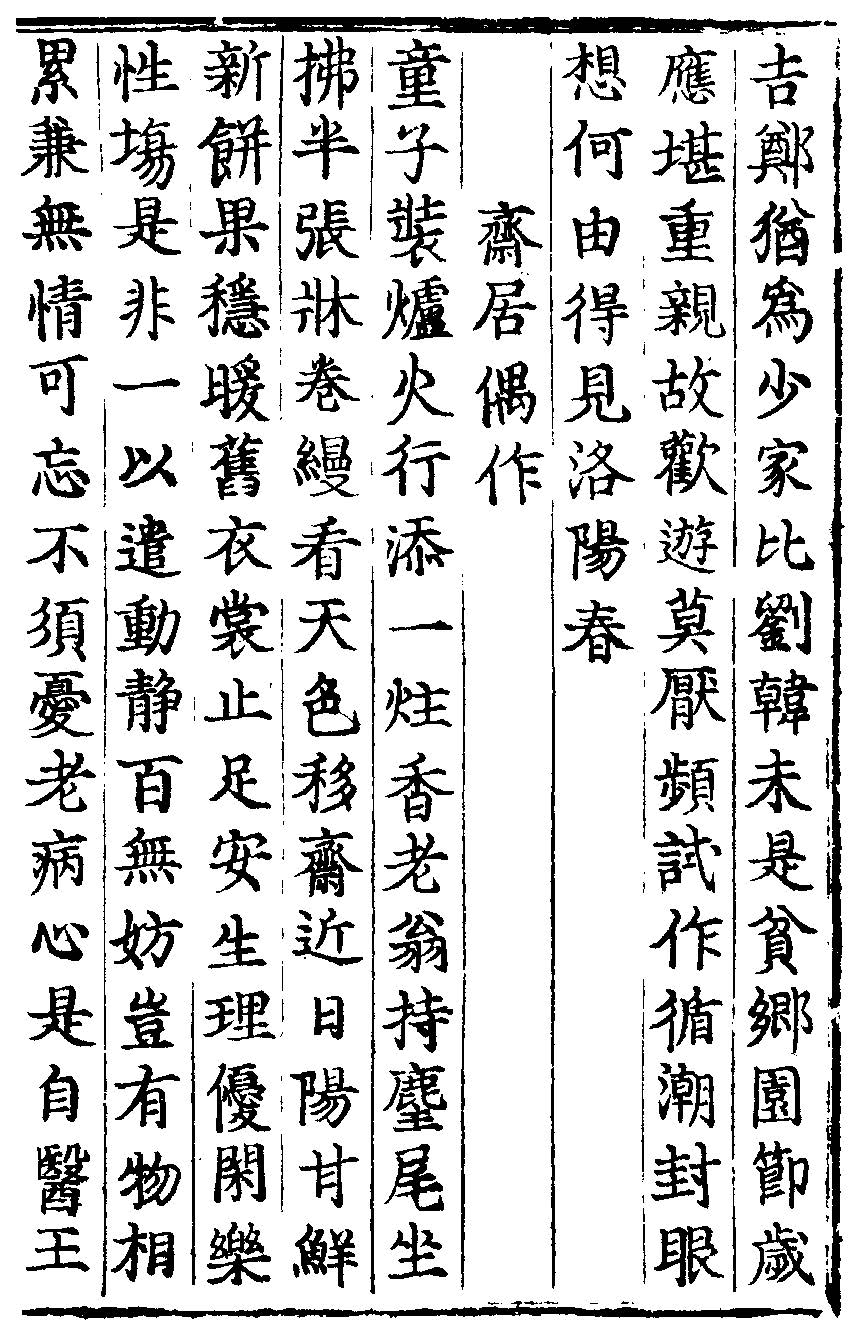 吉鄭猶爲少家比劉韓未是貧鄉園節歲
應堪重親故歡遊莫厭頻試作循潮封眼
想何由得見洛陽春
齋居偶作
童子裝爐火行添一炷香老翁持麈尾坐
拂半張牀卷縵看天色移齋近日陽甘鮮
新餅果穩暖舊衣裳止足安生理優閑樂
性塲是非一以遣動静百無妨豈有物相
累兼無情可忘不須憂老病心是自醫王